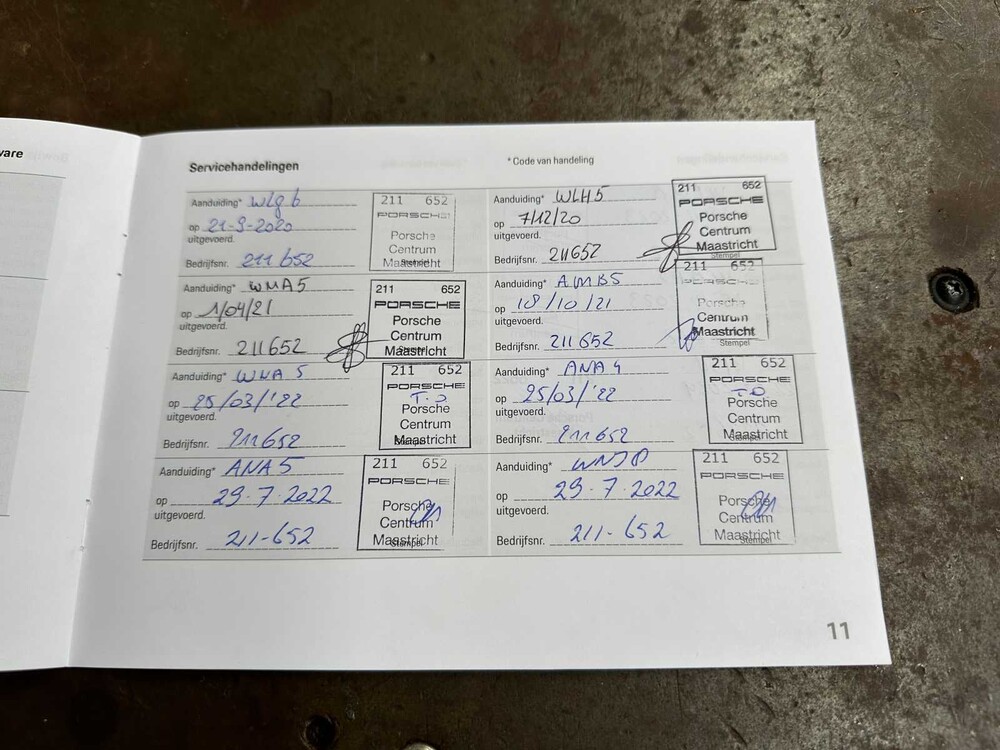 ware
Servicehandelingen
* Code van handeling
Aanduiding* WLG6
op 21-9-2020
uitgevoerd.
Bedrijfsnr. 211652
211 652
PORSCHE
Porsche
Centrum
Maastricht
Stempel
Aanduiding* WLH5
op 7/12/20
uitgevoerd.
Bedrijfsnr. 211652
211 652
PORSCHE
Porsche
Centrum
Maastricht
Stempel
Aanduiding* WMA5
op 1/04/21
uitgevoerd.
Bedrijfsnr. 211652
211 652
PORSCHE
Porsche
Centrum
Maastricht
Stempel
Aanduiding* AMB5
op 18/10/21
uitgevoerd.
Bedrijfsnr. 211652
211 652
PORSCHE
Porsche
Centrum
Maastricht
Stempel
Aanduiding* WNA5
op 25/03/'22
uitgevoerd.
Bedrijfsnr. 211652
211 652
PORSCHE
Porsche
Centrum
Maastricht
Stempel
Aanduiding* ANA4
op 25/03/'22
uitgevoerd.
Bedrijfsnr. 211652
211 652
PORSCHE
Porsche
Centrum
Maastricht
Stempel
Aanduiding* ANA5
op 29-7-2022
uitgevoerd.
Bedrijfsnr. 211-652
211 652
PORSCHE
Porsche
Centrum
Maastricht
Stempel
Aanduiding*
op 29-7-2022
uitgevoerd.
Bedrijfsnr. 211-652
211 652
PORSCHE
Porsche
Centrum
Maastricht
Stempel
11